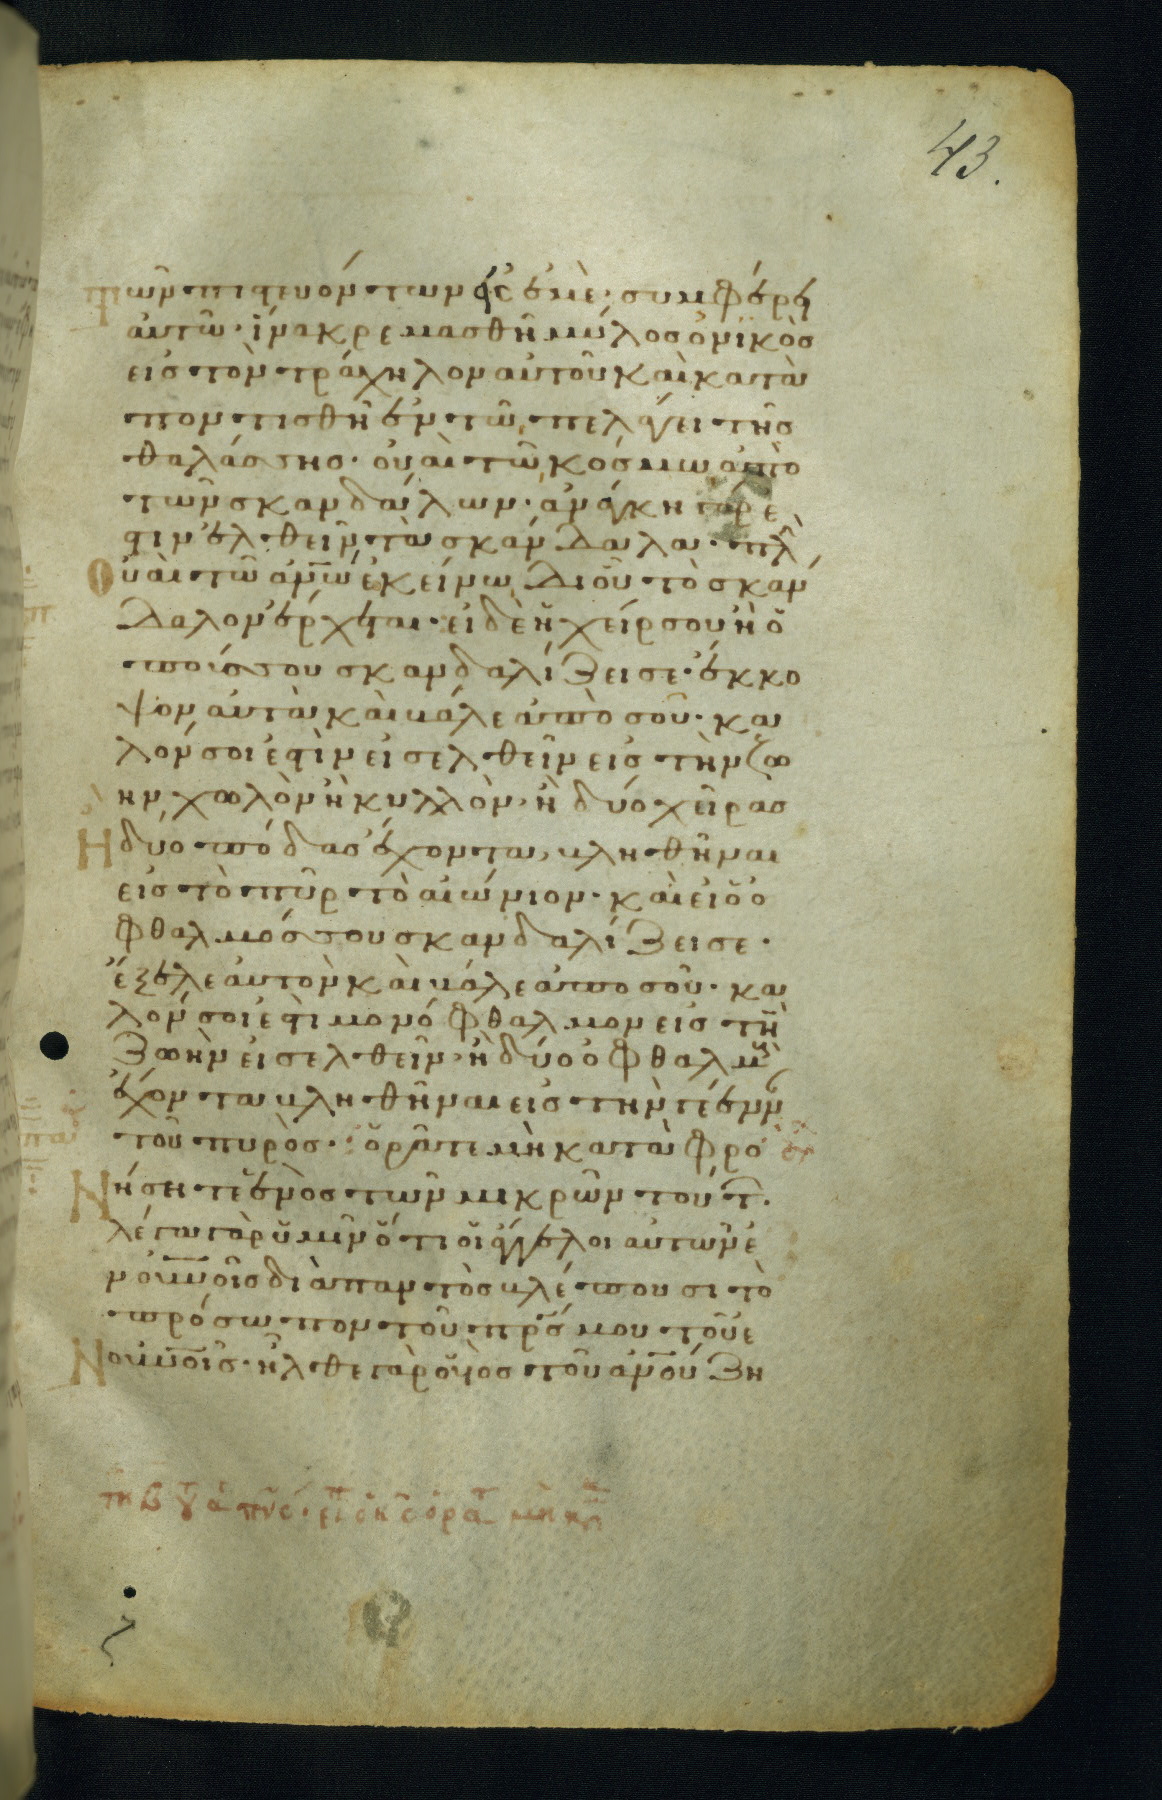 43.
τῶν πιστευόντων εἰς ἐμὲ· συμφέρει
αυτῶ· ἵνα κρεμασθῆ μύλος ὀνϊκὸς
εἰς τὸν τράχηλον αυτοῦ καὶ κατα
ποντισθῆ ἐν τῶ πελάγει τῆς
θαλάσσης· οὐαὶ τῶ κόσμω ἀπὸ
τῶν σκανδάλων· ἀνάγκη γάρ ἐ
στιν ἐλθεῖν τὰ σκάνδαλα· πλὴ
Οὐαὶ τῶ ἀν̅ω̅ ἐκείνω δι οὗ τὸ σκάν
δαλον ἔρχεται· εἰ δὲ ἡ χείρ σου ἢ ὁ
πούς σου σκανδαλίζει σε· ἔκκο
ψον αὐτὰ καὶ βάλε ἀπὸ σοῦ· κα
λόν σοι ἐστὶν εἰσελθεῖν εἰς τὴν ζω
ην χωλὸν ἢ κυλλὸν· ἢ δύο χεῖρας
Ἢ δύο πόδας ἔχοντα, βληθῆναι
εἰς τὸ πῦρ τὸ αἰώνιον· καὶ εἰ ὁ ὀ
φθαλμός σου σκανδαλίζει σε·
ἔξελε αὐτὸν καὶ βάλε ἀπο σοῦ· κα
λόν σοι ἐστι μονόφθαλμον εἰς τὴν
ζωὴν εἰσελθεῖν· ἢ δύο ὀφθαλμοὺς
ἔχοντα βληθῆναι εἰς τὴν γέενναν
τοῦ πυρὸς· ὁρᾶτε μὴ καταφρο
Νήσητε ἑνὸς τῶν μικρῶν τούτων·
λέγω γὰρ ὑμῖν ὅτι οἱ ἄγγελοι αὐτῶν ἐ
ν οὐν̅οῖς διὰ παντὸς βλέπουσι τὸ
πρόσωπον τοῦ πρ̅ς μου τοῦ ἐ
Ν οὐν̅οῖς· ἦλθε γὰρ ὁ υἱὸς τοῦ ἀν̅ου ζη